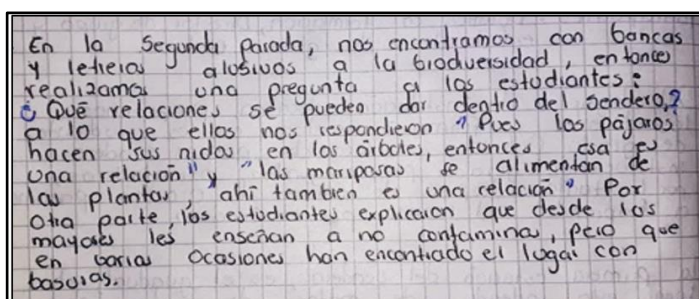 En la Segunda Parada, nos encontramos con bancas
y letreros alusivos a la biodiversidad, entonces
realizamos una pregunta a los estudiantes:
¿Qué relaciones se pueden dar dentro del Sendero?
a lo que ellos nos respondieron "Pues los pájaros
hacen sus nidos en los árboles, entonces esa es
una relación" y "las mariposas se alimentan de
las plantas, ahí tambien es una relación" Por
otra parte, los estudiantes explicaron que desde los
mayores les enseñan a no contaminar, pero que
en barias Ocasiones han encontrado el lugar con
basuras.